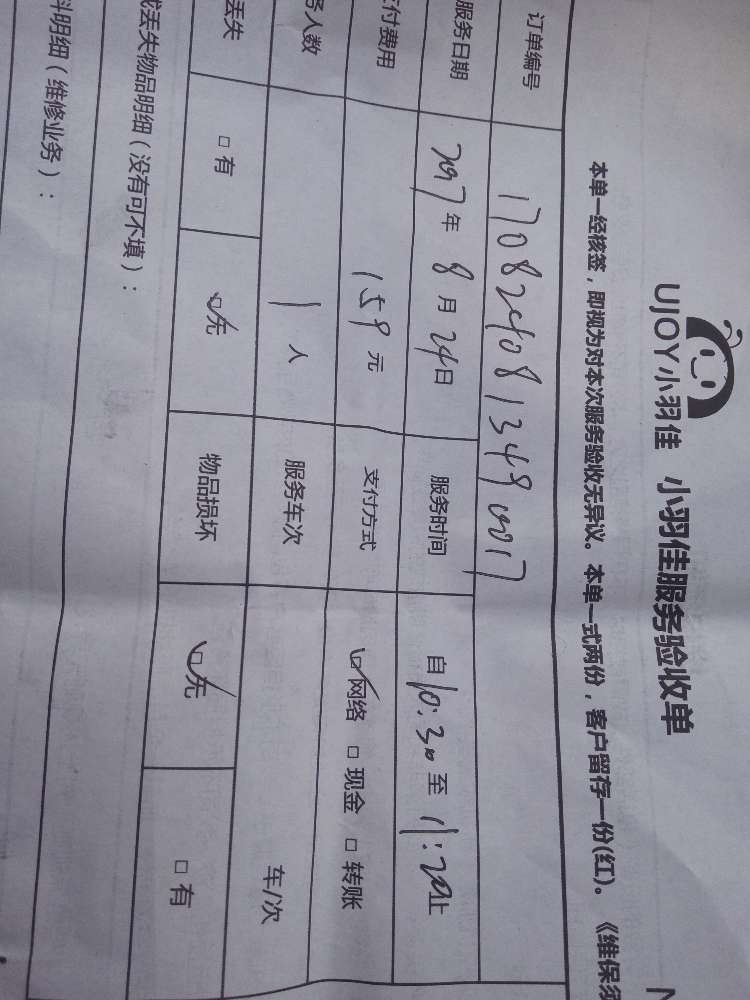 UJOY小羽佳 小羽佳服务验收单
本单一经核签，即视为对本次服务验收无异议。本单一式两份，客户留存一份(红)。《维保须
订单编号
服务日期 2017年8月24日 服务时间 自10:30至11:20止
付费用 159元 支付方式 ☑网络 □现金 □转账
务人数 1人 服务车次 车/次
丢失 □有 ☑无 物品损坏 ☑无 □有
或丢失物品明细（没有可不填）：
料明细（维修业务）：